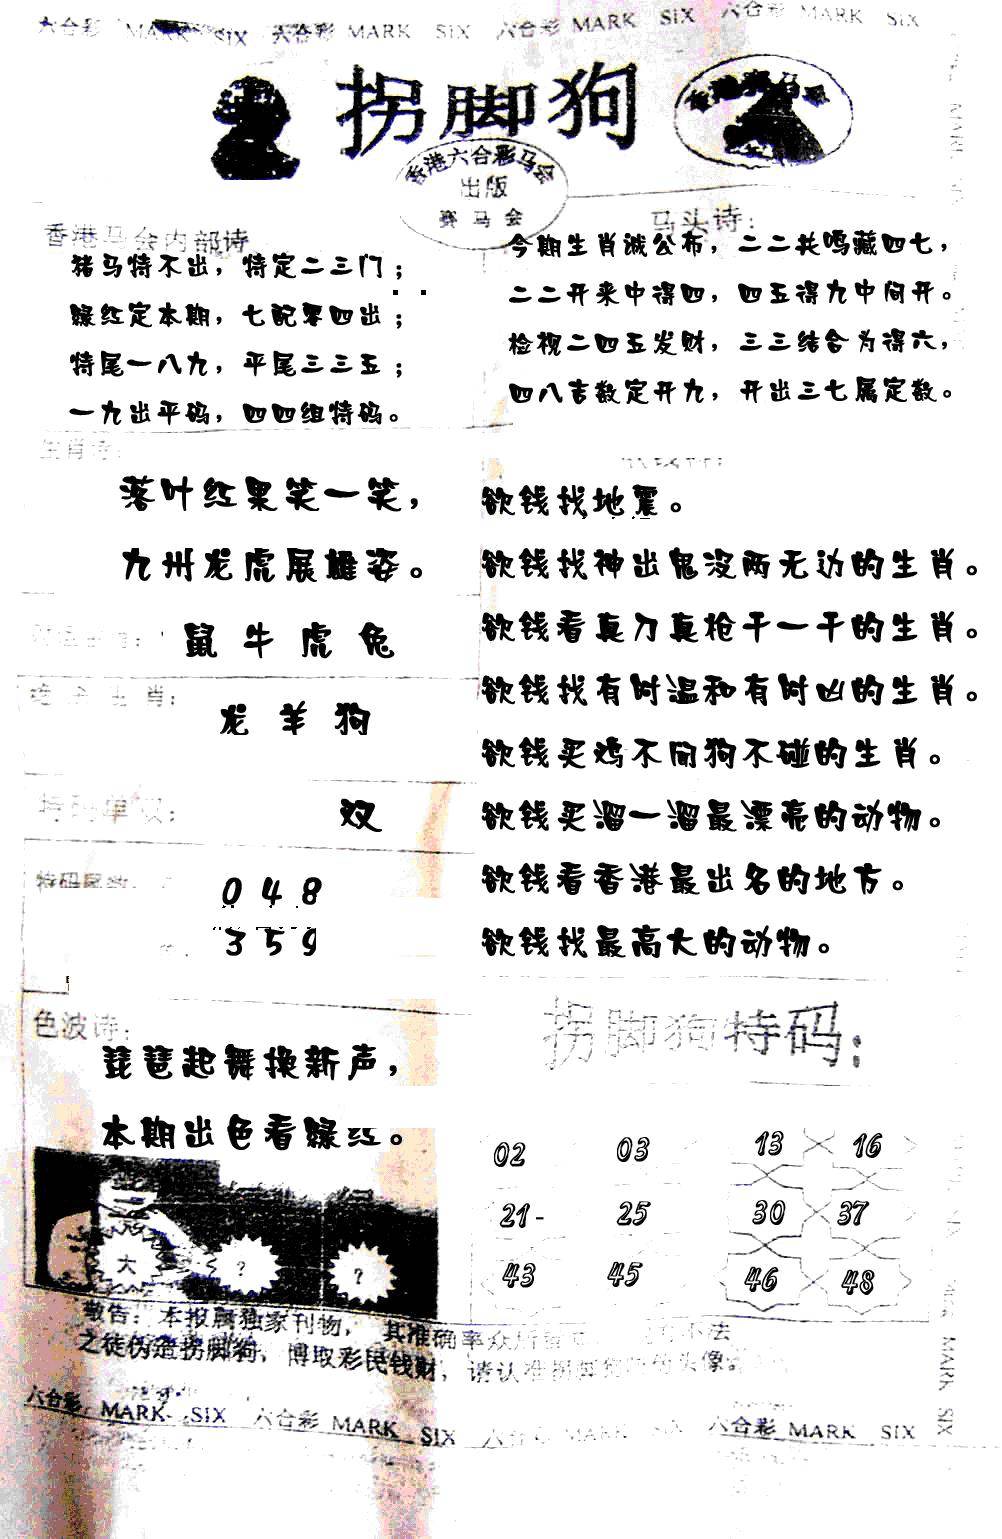 六合彩 MARK SIX 六合彩 MARK SIX 六合彩 MARK SIX 六合彩 MARK SIX
拐脚狗
香港赛马会
香港六合彩马会
出版
赛马会
香港马会内部诗
猪马特不出，特定二三门；
绿红定本期，七配零四出；
特尾一八九，平尾三三五；
一九出平码，四四组特码。
马头诗：
今期生肖诚公布，二二共鸣藏四七，
二二开来中得四，四五得九中间开。
检视二四五发财，三三结合为得六，
四八吉数定开九，开出三七属定数。
生肖诗：
落叶红果笑一笑，
九州龙虎展雄姿。
鼠 牛 虎 兔
生肖：
龙 羊 狗
特码单双：
双
特码尾数：
0 4 8
3 5 9
欲钱找地震。
欲钱找神出鬼没两无边的生肖。
欲钱看真刀真枪干一干的生肖。
欲钱找有时温和有时凶的生肖。
欲钱买鸡不间狗不碰的生肖。
欲钱买溜一溜最漂亮的动物。
欲钱看香港最出名的地方。
欲钱找最高大的动物。
色波诗：
琵琶起舞换新声，
本期出色看绿红。
大 ? ?
拐脚狗特码：
02 03 13 16
21- 25 30 37
43 45 46 48
敬告：本报属独家刊物，其准确率众所 不法
之徒伪造拐脚狗，博取彩民钱财，请认准拐脚 头像。
六合彩 MARK SIX 六合彩 MARK SIX 六合 MARK SIX 六合彩 MARK SIX
MARK SIX